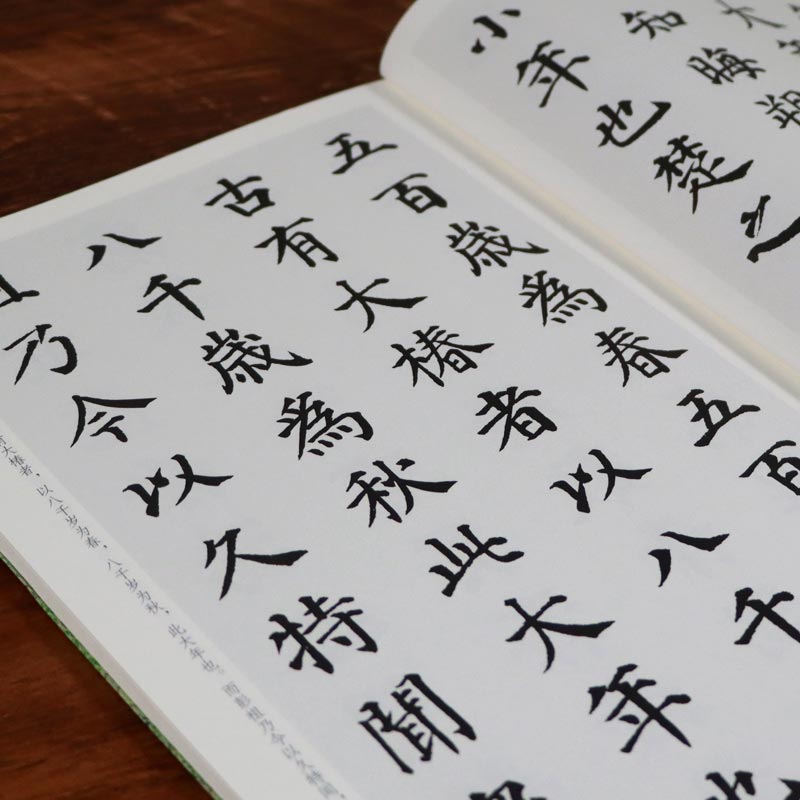 大
知晦朔
小年也楚之
五百歳為春五百
古有大椿者以八千
八千歳為秋此大年
乃今以久特聞
大椿者，以八千岁为春，八千岁为秋，此大年也。而彭祖乃今以久特闻，